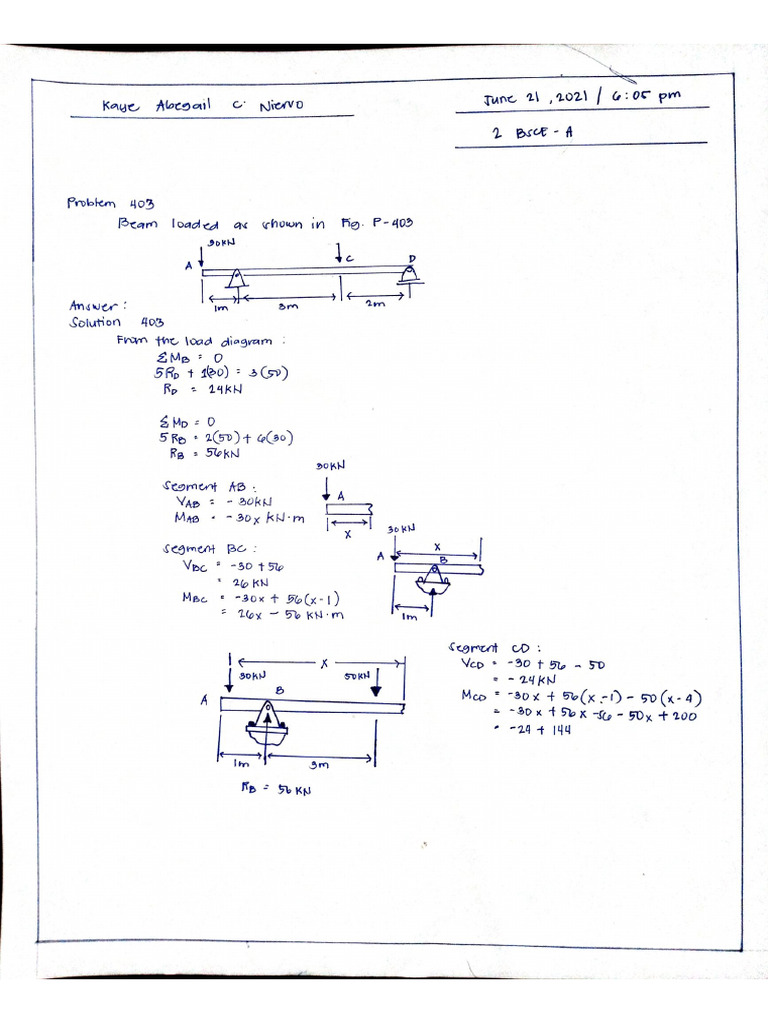 Kaye Abegail C. Niervo
June 21, 2021 / 6:05 pm
2 BSCE - A
Problem 403
Beam loaded as shown in Fig. P-403
30KN
A
C
D
1m
3m
2m
Answer:
Solution 403
From the load diagram:
ΣMB = 0
5RD + 1(30) = 3(50)
RD = 24KN
ΣMD = 0
5RB = 2(50) + 6(30)
RB = 56KN
30KN
Segment AB:
A
VAB = - 30KN
MAB = - 30x KN·m
x
30KN
Segment BC:
x
A
B
VBC = -30 + 56
= 26 KN
MBC = -30x + 56(x-1)
= 26x - 56 KN·m
1m
Segment CD:
VCD = -30 + 56 - 50
= - 24KN
MCD = -30x + 56(x-1) - 50(x-4)
= -30x + 56x -56 - 50x + 200
= -24 + 144
x
30KN
50KN
A
B
1m
3m
RB = 56KN